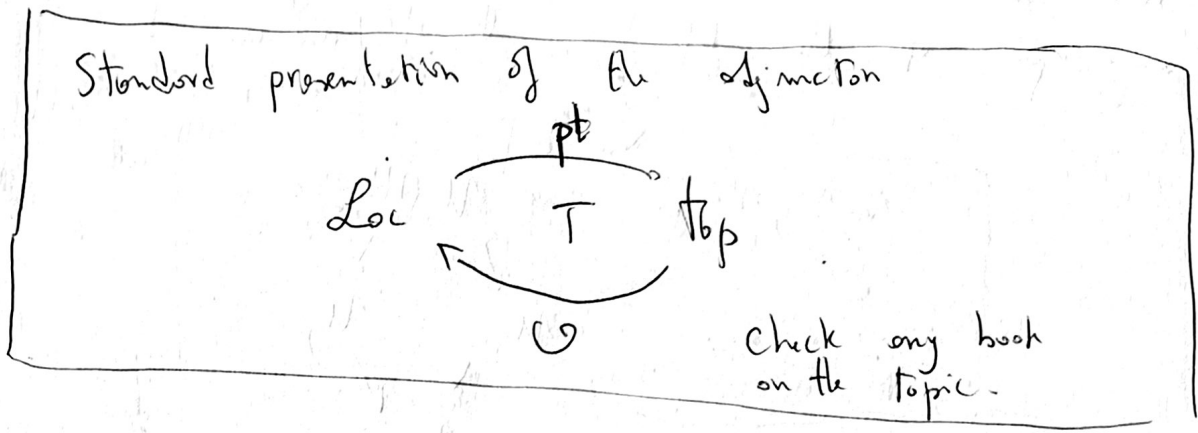 Standard presentation of the adjunction
pt
Loc ⊤ Top
O
Check any book
on the topic.